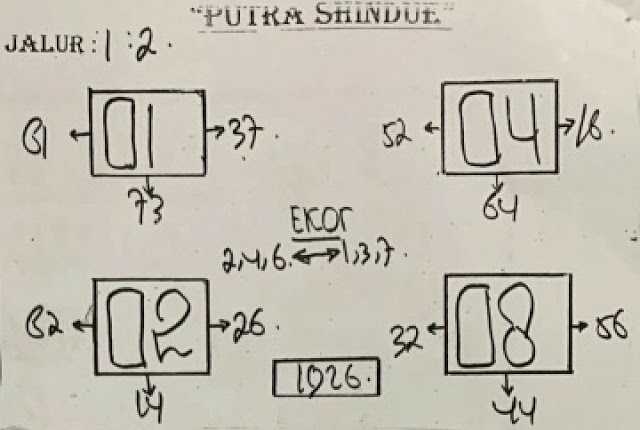 "PUTRA SHINDUE"
JALUR : 1 : 2 .
61 01 37 .
73
52 04 16 .
64
EKOR
2,4,6. 1,3,7 .
62 02 26 .
14
1926.
32 08 56
44